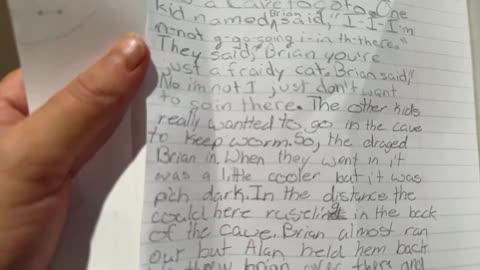 a cave to go to. One
kid named Brian said, "I-I-I'm
n-not g-go-going i-in th-there."
They said, Brian you're
just a fraidy cat. Brian said,"
No im not I just don't want
to go in there. The other kids
really wantted to go in the cave
to keep worm. So, the draged
Brian in. When they went in it
was a little cooler but it was
pich dark. In the distance the
could here rusteling in the back
of the cave. Brian almost ran
our but Alan held hem back
brian over there and